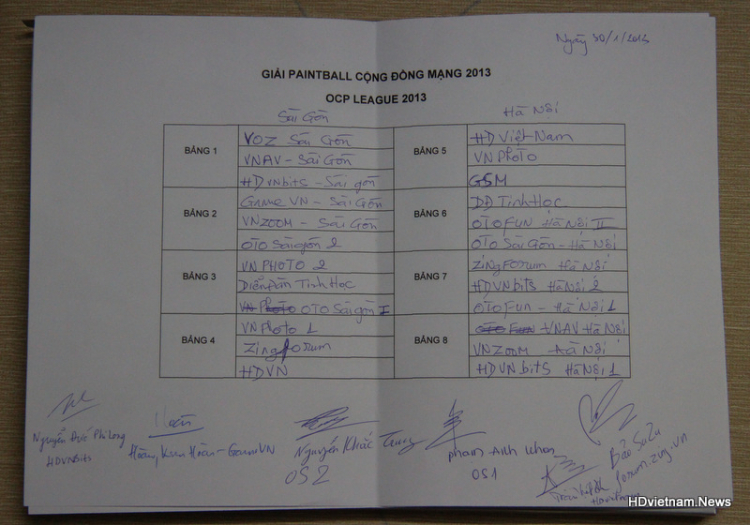 Ngày 30/1/2013
GIẢI PAINTBALL CỘNG ĐỒNG MẠNG 2013
OCP LEAGUE 2013
Sài Gòn
Hà Nội
BẢNG 1
VOZ Sài Gòn
VNAV - Sài Gòn
HDvnbits - Sài gòn
BẢNG 2
Game VN - Sài Gòn
VNZOOM - Sài Gòn
OTO Sàigòn 2
BẢNG 3
VN PHOTO 2
Diễn Đàn Tinh Học
VN Photo OTO Sài gòn I
BẢNG 4
VN Photo 1
Zing forum
HDVN
BẢNG 5
HD Việt Nam
VN Photo
GSM
BẢNG 6
DĐ Tinh Học
OTOFUN Hà Nội II
OTO Sài Gòn - Hà Nội
BẢNG 7
Zing FORUM Hà Nội
HDVNbits Hà Nội 2
OTOFun - Hà Nội 1
BẢNG 8
OTO Fun VNAV Hà Nội
VNZOOM Hà Nội
HDVNbits Hà Nội 1
Nguyễn Đức Phi Long
HDVNBits
Hoàng Kim Hoàn - GameVN
Nguyễn Khắc Trung
OS2
Phạm Anh Khoa
OS1
Bảo SuZu
forum.zing.vn
HDvietnam.News